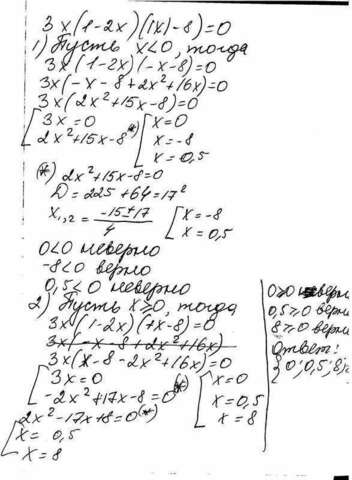 3x(1-2x)(|x|-8)=0
1) Пусть x<0, тогда
3x(1-2x)(-x-8)=0
3x(-x-8+2x²+16x)=0
3x(2x²+15x-8)=0
[3x=0 [x=0
2x²+15x-8 *) x=-8
x=0,5
(*) 2x²+15x-8=0
D=225+64=17²
x₁,₂=(-15±17)/4 [x=-8
x=0,5
0<0 неверно
-8<0 верно
0,5<0 неверно
2) Пусть x≥0, тогда
3x(1-2x)(+x-8)=0
3x(-x-8+2x²+16x)
3x(x-8-2x²+16x)=0
[3x=0 [x=0
-2x²+17x-8=0 (*) x=0,5
2x²-17x+8=0 (*) x=8
[x=0,5
x=8
0≥0 верно
0,5≥0 верно
8≥0 верно
Ответ:
{0; 0,5; 8;